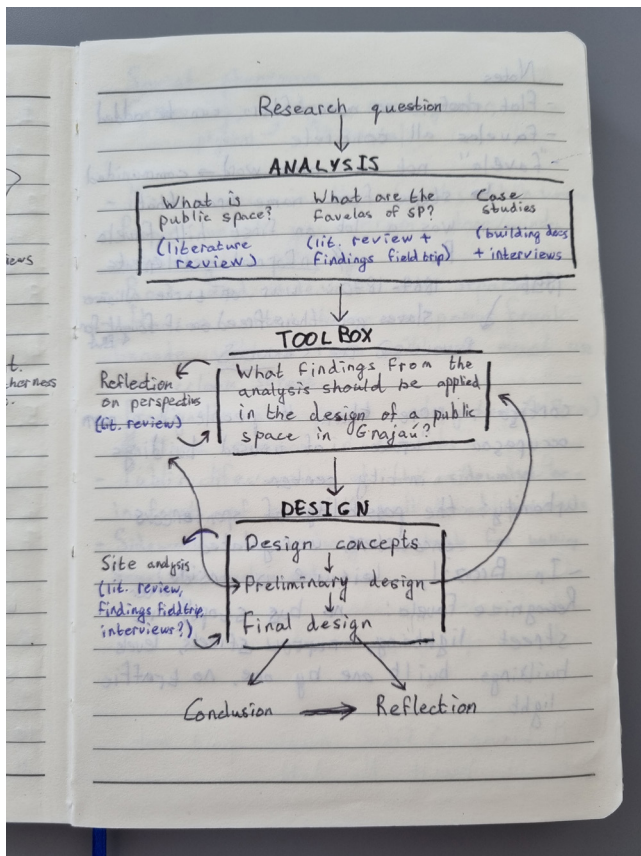 Research question
ANALYSIS
What is
public space?
(literature
review)
What are the
favelas of SP?
(lit. review +
findings fieldtrip)
Case
studies
(building docs
+ interviews
TOOLBOX
Reflection
on perspectives
(lit. review)
What findings from the
analysis should be applied
in the design of a public
space in Grajaú?
DESIGN
Site analysis
(lit. review,
findings fieldtrip,
interviews?)
Design concepts
Preliminary design
Final design
Conclusion
Reflection